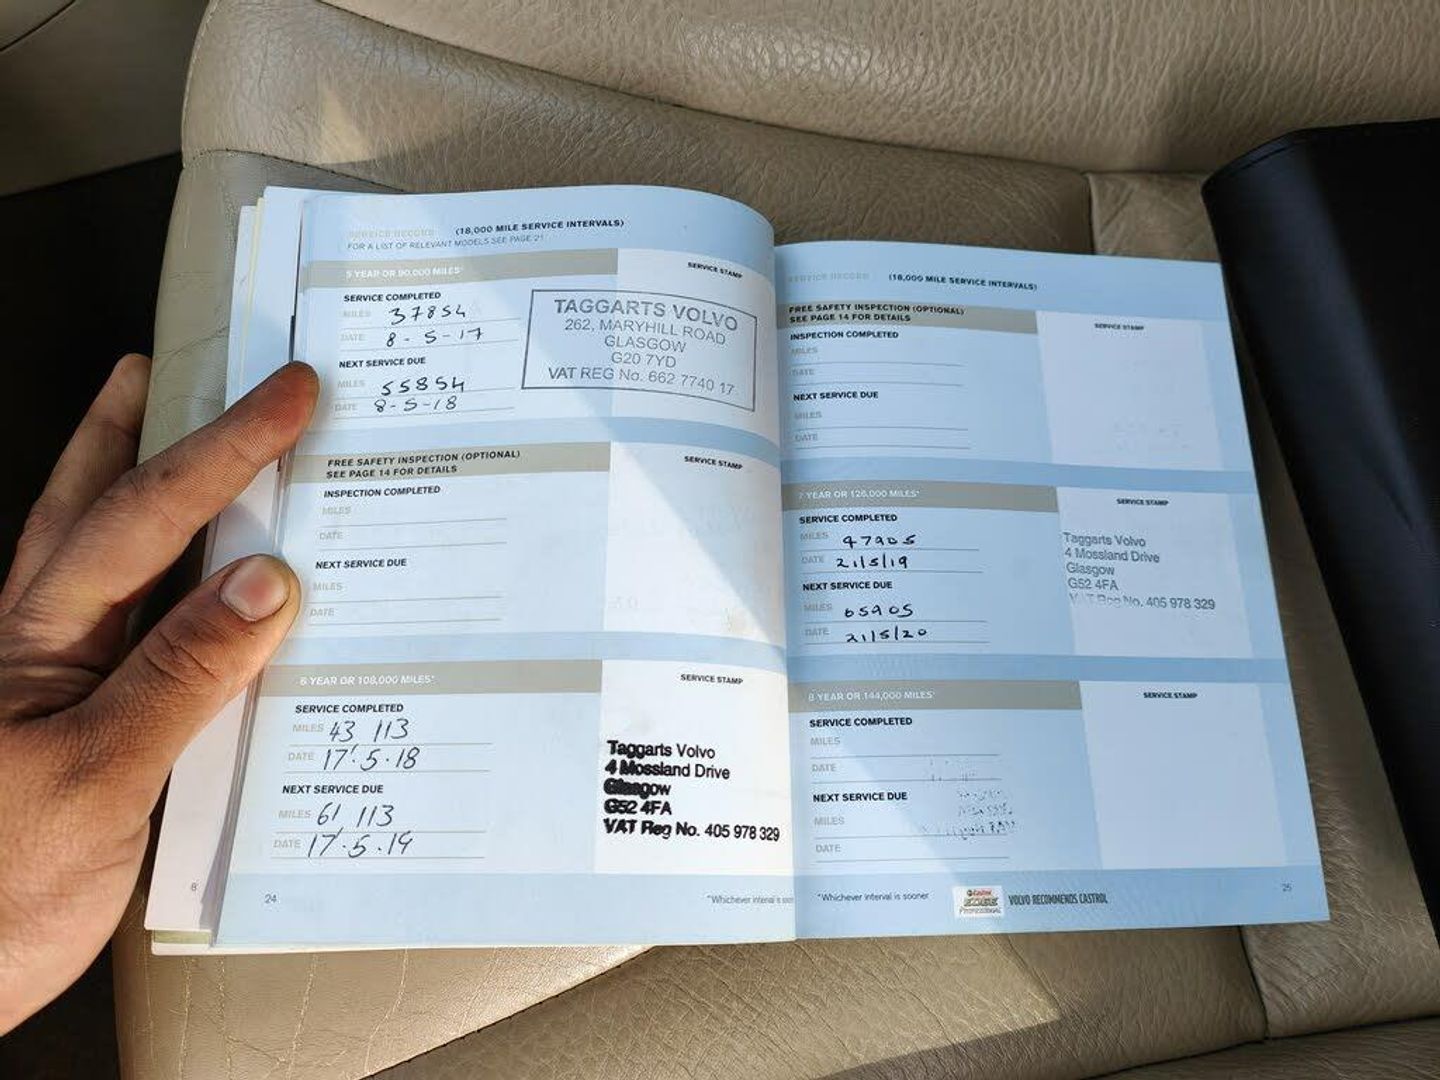 SERVICE RECORD (18,000 MILE SERVICE INTERVALS)
FOR A LIST OF RELEVANT MODELS SEE PAGE 21
5 YEAR OR 90,000 MILES*
SERVICE STAMP
SERVICE COMPLETED
MILES 37854
DATE 8-5-17
NEXT SERVICE DUE
MILES 55854
DATE 8-5-18
TAGGARTS VOLVO
262, MARYHILL ROAD
GLASGOW
G20 7YD
VAT REG No. 662 7740 17
FREE SAFETY INSPECTION (OPTIONAL)
SEE PAGE 14 FOR DETAILS
SERVICE STAMP
INSPECTION COMPLETED
MILES
DATE
NEXT SERVICE DUE
MILES
DATE
6 YEAR OR 108,000 MILES*
SERVICE STAMP
SERVICE COMPLETED
MILES 43 113
DATE 17.5.18
NEXT SERVICE DUE
MILES 61 113
DATE 17.5.19
Taggarts Volvo
4 Mossland Drive
Glasgow
G52 4FA
VAT Reg No. 405 978 329
8
24
*Whichever interval is
SERVICE RECORD (18,000 MILE SERVICE INTERVALS)
FREE SAFETY INSPECTION (OPTIONAL)
SEE PAGE 14 FOR DETAILS
SERVICE STAMP
INSPECTION COMPLETED
MILES
DATE
NEXT SERVICE DUE
MILES
DATE
7 YEAR OR 126,000 MILES*
SERVICE STAMP
SERVICE COMPLETED
MILES 47905
DATE 21/5/19
NEXT SERVICE DUE
MILES 65905
DATE 21/5/20
Taggarts Volvo
4 Mossland Drive
Glasgow
G52 4FA
VAT Reg No. 405 978 329
8 YEAR OR 144,000 MILES*
SERVICE STAMP
SERVICE COMPLETED
MILES
DATE
NEXT SERVICE DUE
MILES
DATE
*Whichever interval is sooner
Castrol
EDGE
PROFESSIONAL
VOLVO RECOMMENDS CASTROL
25